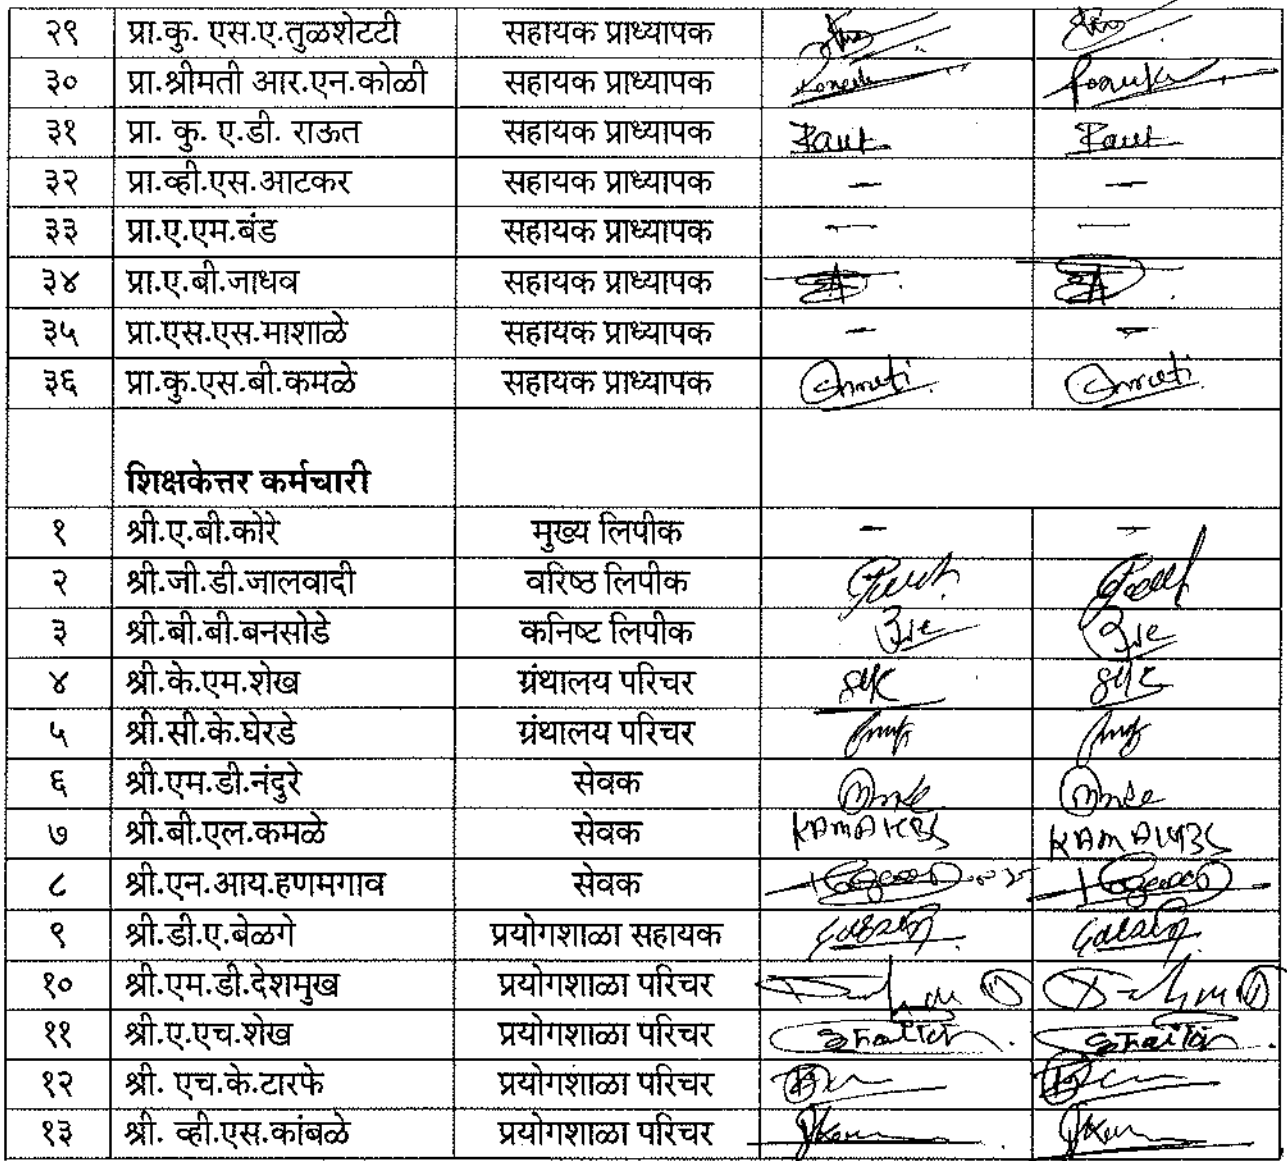 २९ प्रा.कु. एस.ए.तुळशेटटी सहायक प्राध्यापक
३० प्रा.श्रीमती आर.एन.कोळी सहायक प्राध्यापक
३१ प्रा. कु. ए.डी. राऊत सहायक प्राध्यापक Raut Raut
३२ प्रा.व्ही.एस.आटकर सहायक प्राध्यापक - -
३३ प्रा.ए.एम.बंड सहायक प्राध्यापक - -
३४ प्रा.ए.बी.जाधव सहायक प्राध्यापक
३५ प्रा.एस.एस.माशाळे सहायक प्राध्यापक - -
३६ प्रा.कु.एस.बी.कमळे सहायक प्राध्यापक
शिक्षकेत्तर कर्मचारी
१ श्री.ए.बी.कोरे मुख्य लिपीक - -
२ श्री.जी.डी.जालवादी वरिष्ठ लिपीक
३ श्री.बी.बी.बनसोडे कनिष्ट लिपीक
४ श्री.के.एम.शेख ग्रंथालय परिचर
५ श्री.सी.के.घेरडे ग्रंथालय परिचर
६ श्री.एम.डी.नंदुरे सेवक
७ श्री.बी.एल.कमळे सेवक
८ श्री.एन.आय.हणमगाव सेवक
९ श्री.डी.ए.बेळगे प्रयोगशाळा सहायक
१० श्री.एम.डी.देशमुख प्रयोगशाळा परिचर
११ श्री.ए.एच.शेख प्रयोगशाळा परिचर
१२ श्री. एच.के.टारफे प्रयोगशाळा परिचर
१३ श्री. व्ही.एस.कांबळे प्रयोगशाळा परिचर